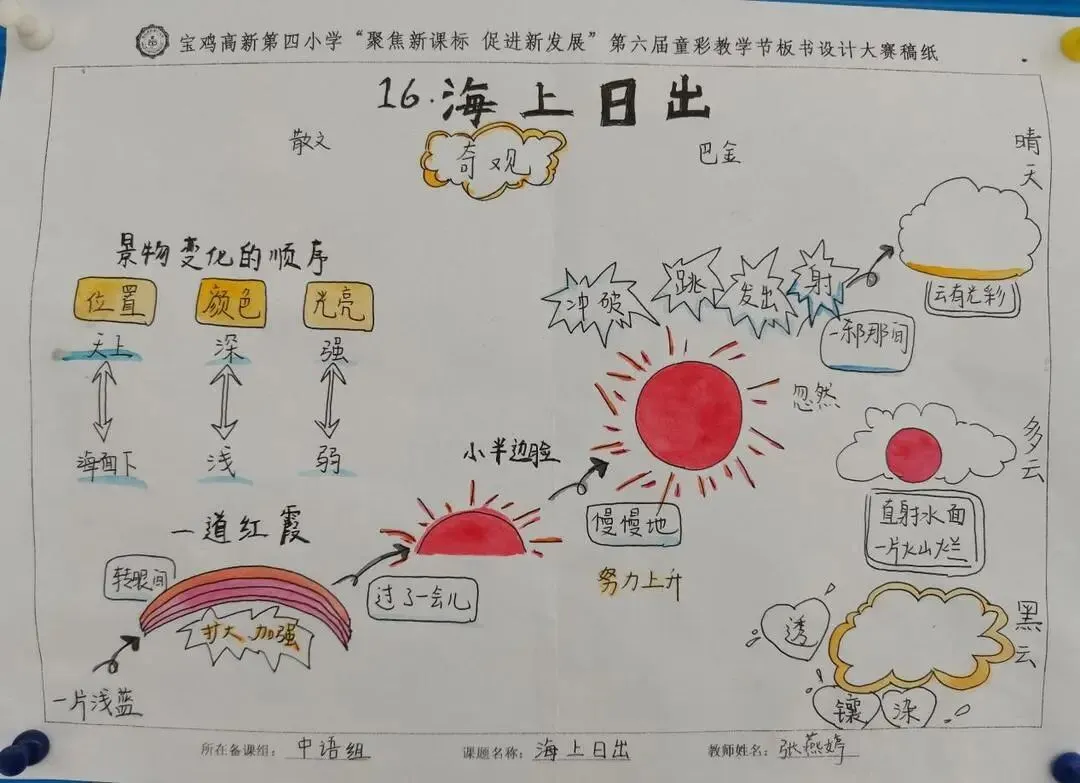 宝鸡高新第四小学“聚焦新课标 促进新发展”第六届童彩教学节板书设计大赛稿纸
16.海上日出
散文
奇观
巴金
晴天
景物变化的顺序
位置 颜色 光亮
天上 深 强
海面下 浅 弱
冲破 跳 发出 射
云有光彩
一刹那间
忽然
小半边脸
多云
一道红霞
慢慢地
直射水面
一片灿烂
转眼间
过了一会儿
努力上升
扩大 加强
透
黑云
一片浅蓝
镶 染
所在备课组：中语组
课题名称：海上日出
教师姓名：张燕婷